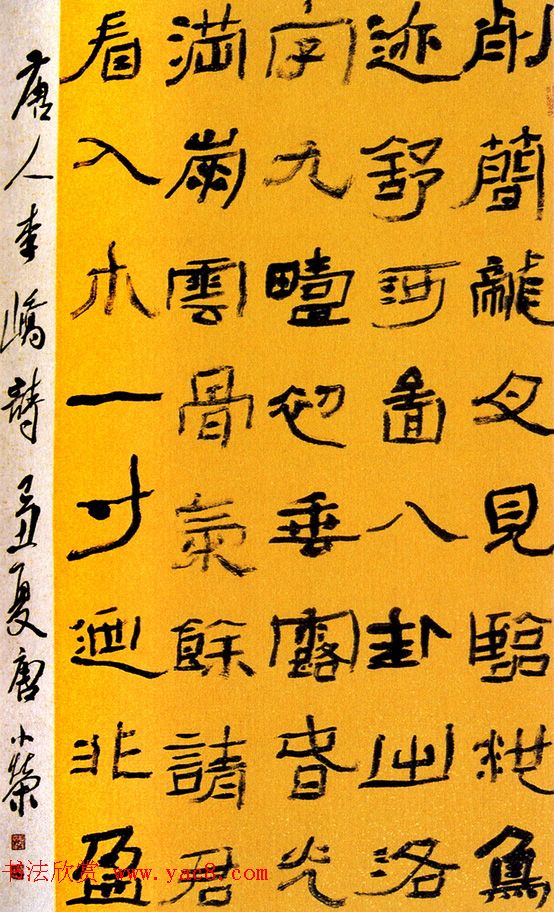 削簡龍文見臨池鳥
迹舒河圖八卦出洛
字九疇初垂露春光
滿崩雲骨氣餘請君
看入木一寸迺非盈
唐人李嶠詩 己丑夏唐小榮
书法欣赏 www.yac8.com